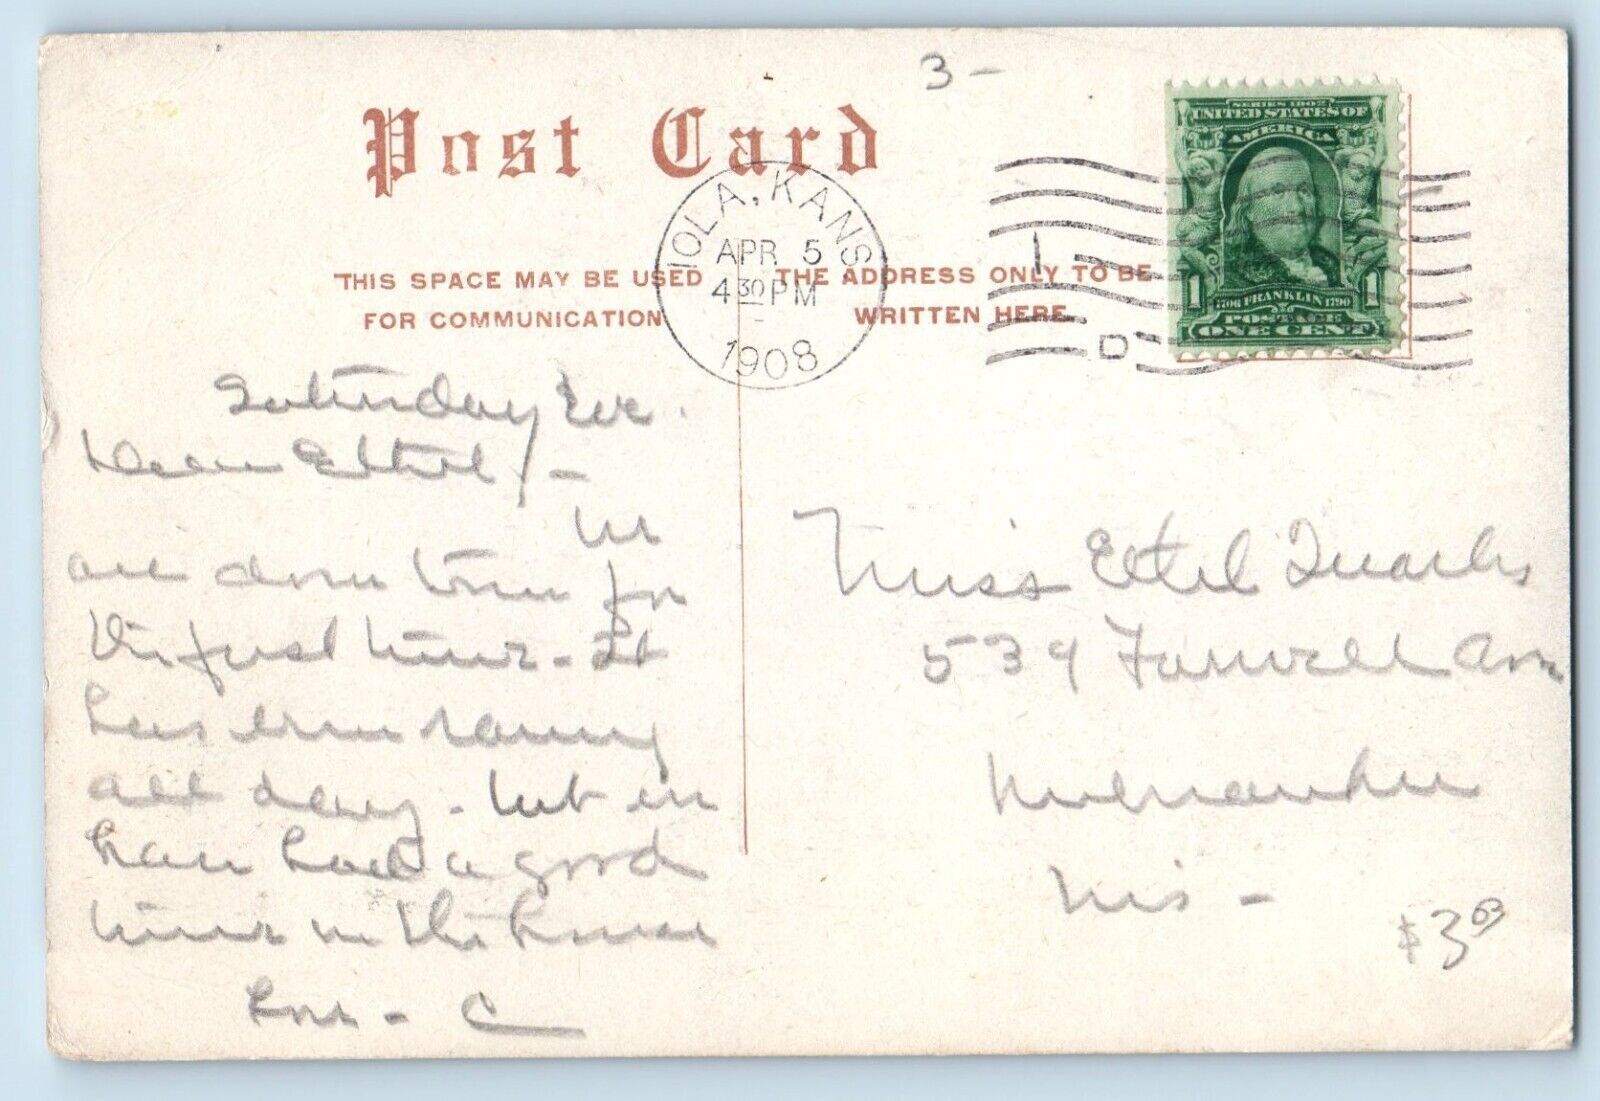 3 -
Post Card
SERIES 1902
UNITED STATES OF
AMERICA
1706 FRANKLIN 1790
POSTAGE
1 ONE CENT 1
IOLA, KANS
APR 5
4 30 PM
1908
1
D
THIS SPACE MAY BE USED
FOR COMMUNICATION
THE ADDRESS ONLY TO BE
WRITTEN HERE
Saturday Eve.
Dear Ethel, -
We
are down town for
the first time - It
has been raining
all day - but we
have had a good
time in the house
Love - C
Miss Ethel Quarles
539 Farwell Ave
Milwaukee
Wis -
$3.03